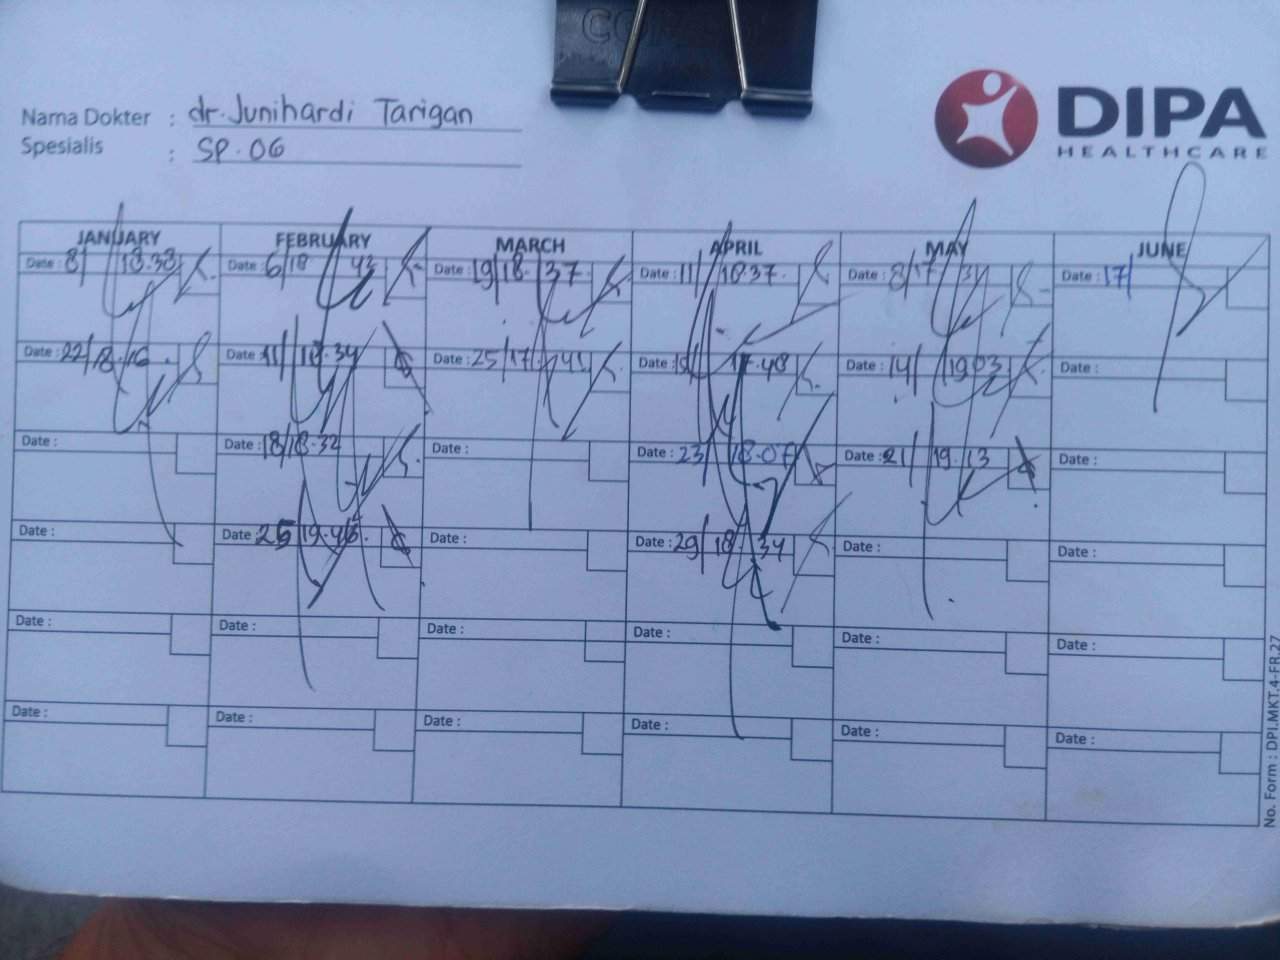 Nama Dokter : dr. Junihardi Tarigan
Spesialis : SP. OG
DIPA
HEALTHCARE
JANUARY FEBRUARY MARCH APRIL MAY JUNE
Date : 8/ 18.38 Date : 6/18 42 Date : 19/18 37. Date : 11/ 18.37. Date : 8/17 34 Date : 17/
Date : 22/18.16. Date : 11/ 18.34 Date : 25/17.41 Date : 17.48 Date : 14/ 19 03 Date :
Date : Date : 18/18.32 Date : Date : 23/ 18.07 Date : 21/ 19.13 Date :
Date : Date : 25 19.46. Date : Date : 29/ 18. 34 Date : Date :
Date : Date : Date : Date : Date : Date :
Date : Date : Date : Date : Date : Date :
No. Form : DPI.MKT.4-FR.27